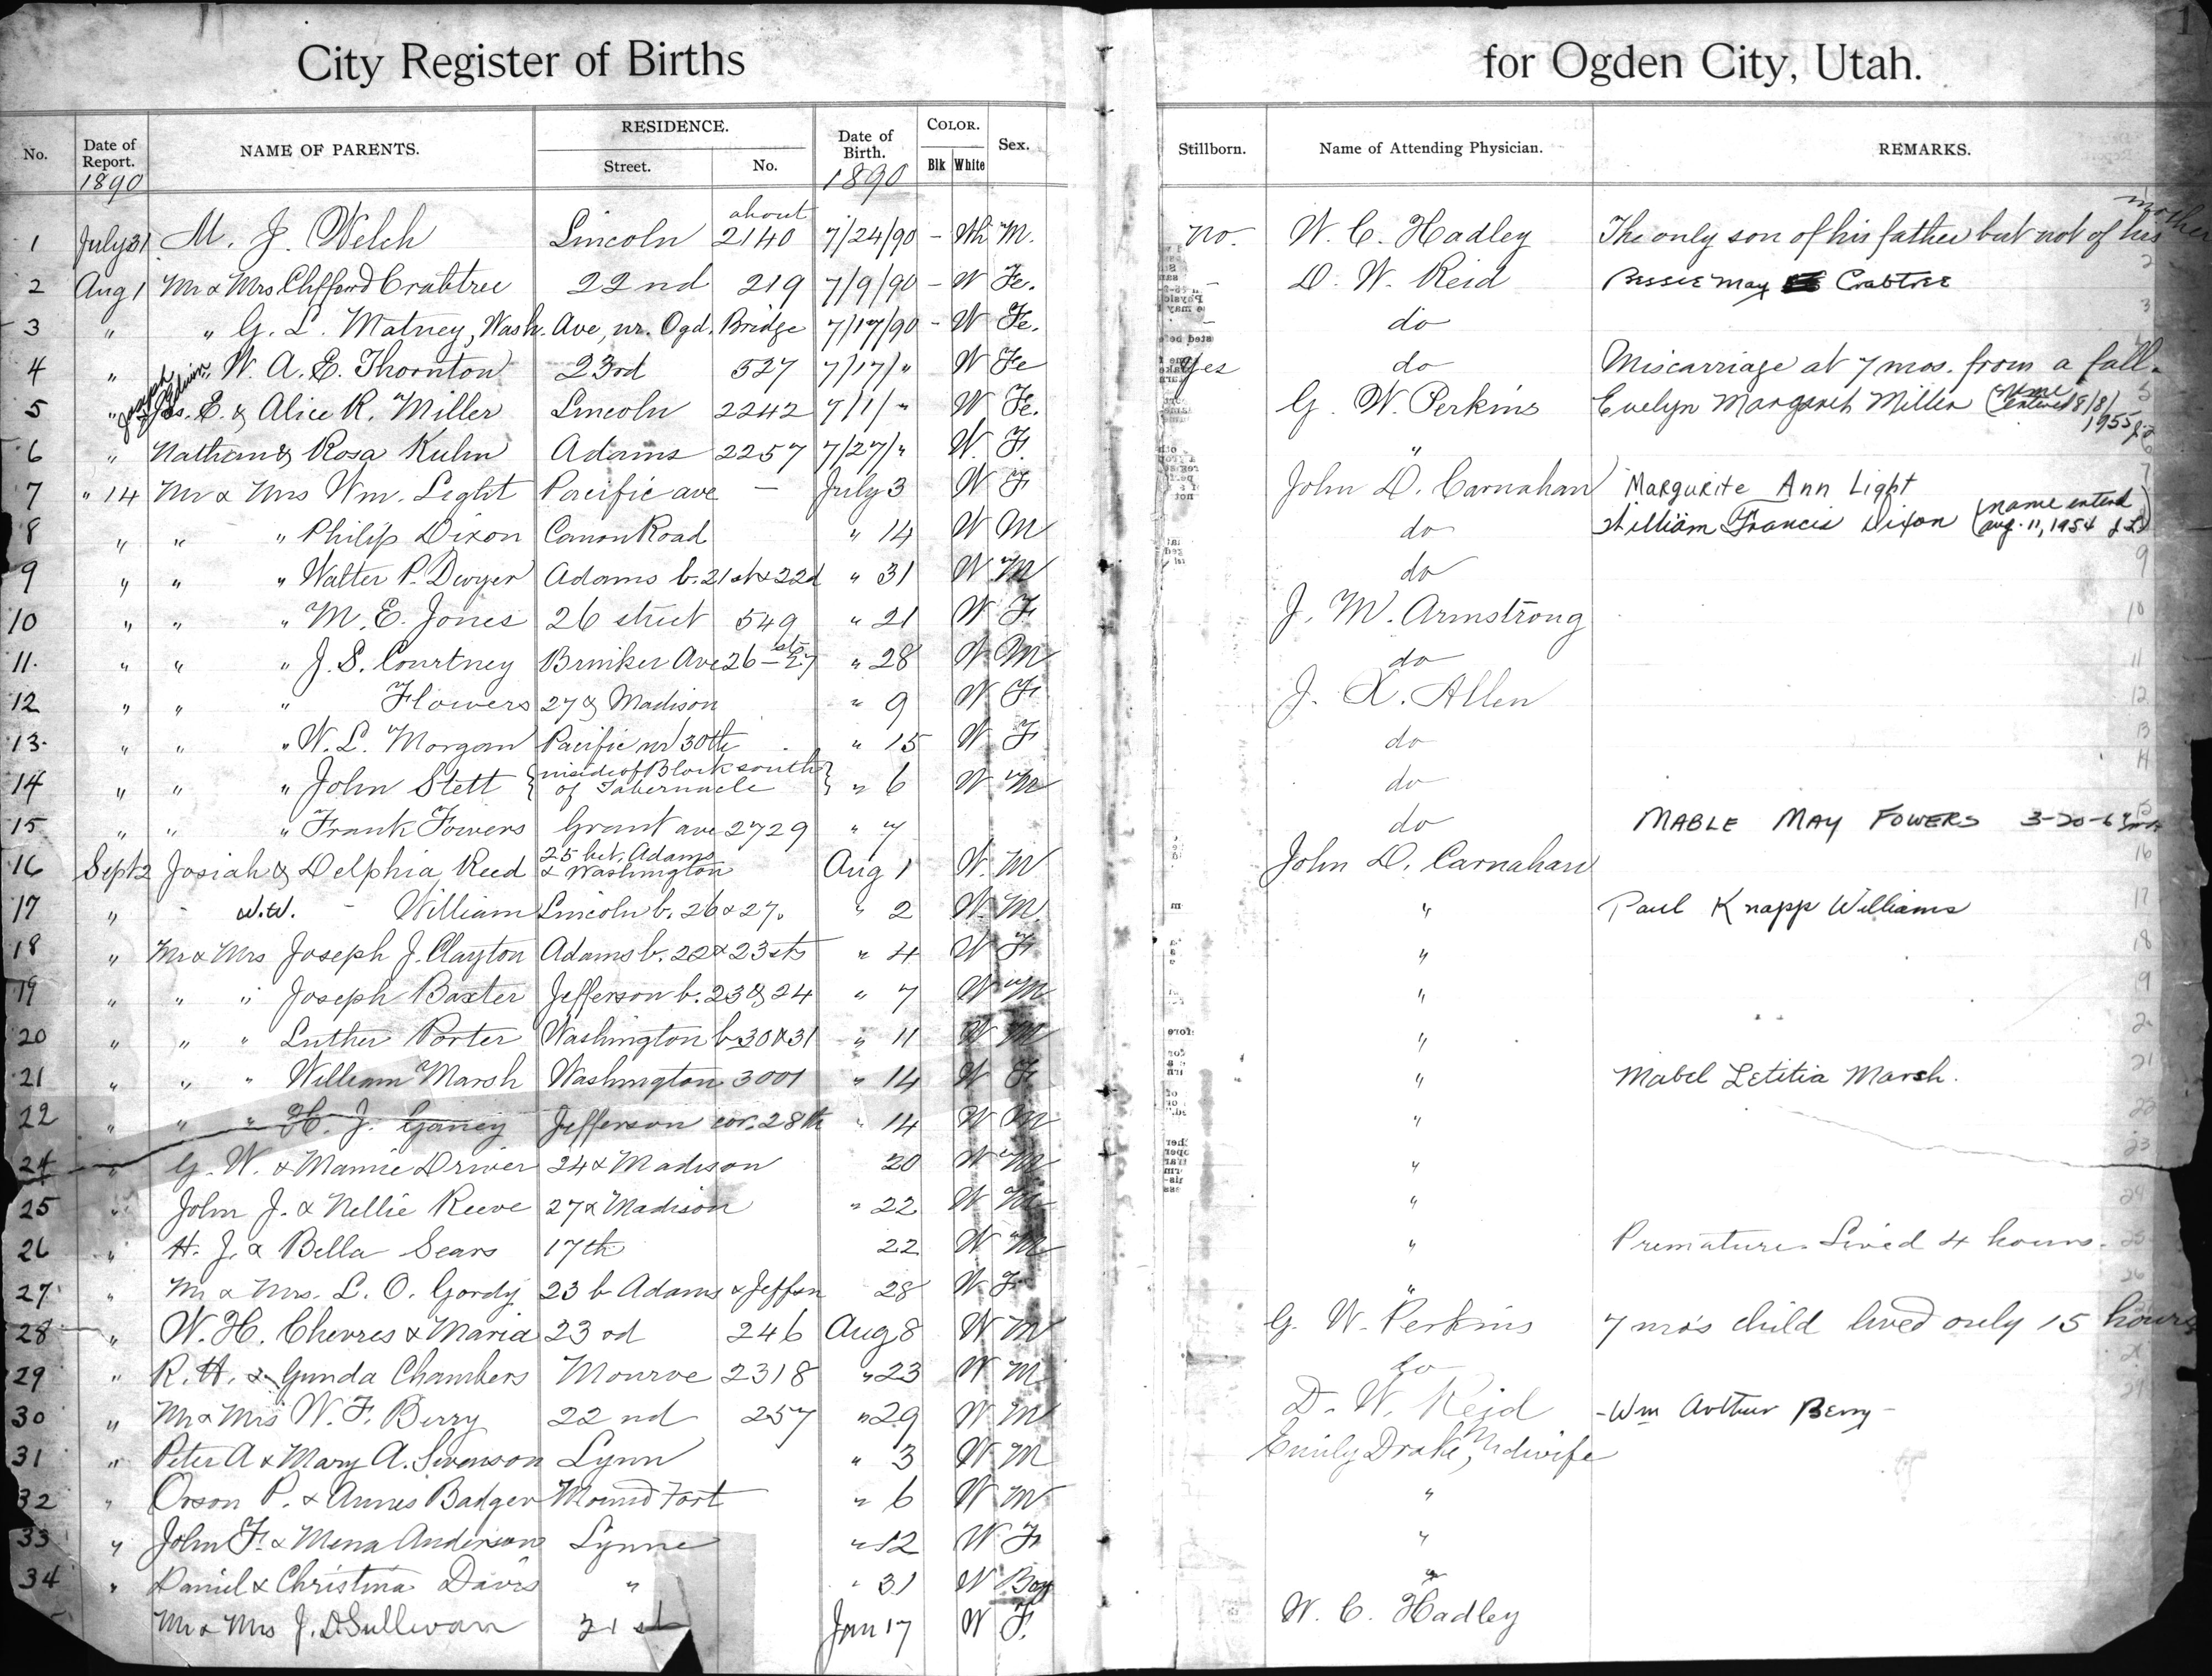 City Register of Births for Ogden City, Utah.
No. Date of Report. 1890 NAME OF PARENTS. RESIDENCE. Street. No. Date of Birth. 1890 COLOR. Blk White Sex. Stillborn. Name of Attending Physician. REMARKS.
1 July 31 M. J. Welch Lincoln about 2140 7/24/90 - Wh M. no. W. C. Hadley The only son of his father but not of his mother
2 Aug 1 Mr & Mrs Clifford Crabtree 22nd 219 7/9/90 - W Fe. - D. W. Reid Bessie May Crabtree
3 " " G. L. Matney, Wash. Ave, nr. Ogd. Bridge 7/17/90 - W Fe. - do
4 " " W. A. E. Thornton 23rd 527 7/17/" W Fe Yes do Miscarriage at 7 mos. from a fall.
5 " Joseph Edwin Jos. E. & Alice R. Miller Lincoln 2242 7/1/" W Fe. G. W. Perkins Evelyn Margaret Miller (name entered 8/8/1955
6 " Nathan & Rosa Kuhn Adams 2257 7/27/" W. F. "
7 " 14 Mr & Mrs Wm. Light Pacific ave - July 3 W F John D. Carnahan Margurite Ann Light
8 " " " Philip Dixon Canon Road " 14 W M do William Francis Dixon (name enterd aug. 11, 1954
9 " " " Walter P. Dwyer Adams b. 21st & 22d " 31 W M do
10 " " " M. E. Jones 26 street 549 " 21 W F J. M. Armstrong
11. " " " J. S. Courtney Brinker Ave 26-27 sts " 28 W M do
12 " " " Flowers 27 & Madison " 9 W F J. X. Allen
13. " " " W. L. Morgan Pacific nr 30th " 15 W F do
14 " " " John Stett { inside of Block south of Tabernacle } " 6 W M do
15 " " " Frank Fowers Grant ave 2729 " 7 do MABLE MAY FOWERS 3-20-67
16 Sept 2 Josiah & Delphia Reed 25 bet. Adams & Washington Aug 1 W. M John D. Carnahan
17 " - W.W. - William Lincoln b. 26 & 27. " 2 W. M. " Paul Knapp Williams
18 " Mr & Mrs Joseph J. Clayton Adams b. 22 & 23 sts " 4 W F "
19 " " " Joseph Baxter Jefferson b. 23 & 24 " 7 W M "
20 " " " Luther Porter Washington b 30 & 31 " 11 W M "
21 " " " William Marsh Washington 3001 " 14 W F " Mabel Letitia Marsh.
22 " " " H. J. Garvey Jefferson cor. 28th " 14 W M "
24 " G. W. & Mamie Driver 24 & Madison 20 W M "
25 " John J. & Nellie Reeve 27 & Madison " 22 W M "
26 " H. J. & Bella Sears 17th 22 W M " Premature. Lived 4 hours.
27 " Mr & Mrs. L. O. Gordy 23 b Adams & Jeffsn 28 W. F "
28 " W. H. Chevres & Maria 23 rd 246 Aug 8 W M G. W. Perkins 7 mo's child lived only 15 hours
29 " R. H. & Gunda Chambers Monroe 2318 " 23 W M do
30 " Mr & Mrs W. F. Berry 22 nd 257 " 29 W M D. W. Reid -Wm Arthur Berry-
31 " Peter A & Mary A. Swenson Lynn " 3 W M Emily Drake, Midwife
32 " Orson P. & Annes Badger Mound Fort " 6 W M "
33 " John F. & Mena Anderson Lynne " 12 W F "
34 " Daniel & Christina Davis " " 31 W Boy "
Mr & Mrs J. D Sullivan 21 st Jan 17 W F. W. C. Hadley